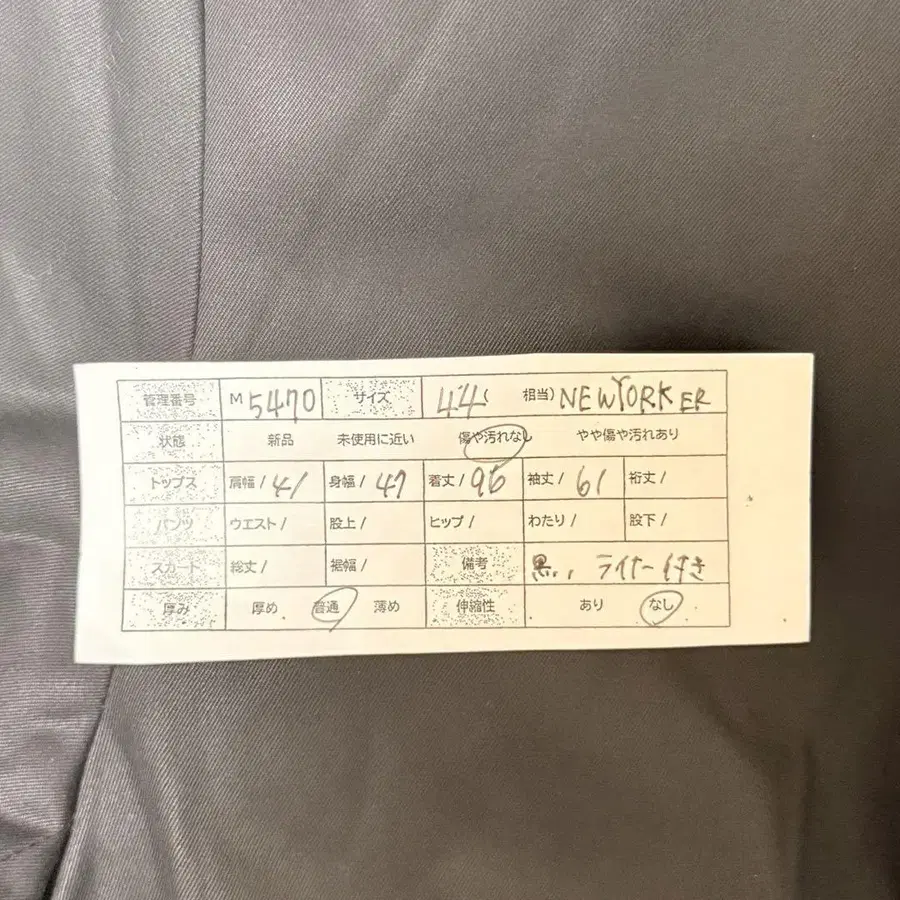 管理番号 M 5470 サイズ 44( 相当) NEWYORKER
状態 新品 未使用に近い 傷や汚れなし やや傷や汚れあり
トップス 肩幅 / 41 身幅 / 47 着丈 / 96 袖丈 / 61 裄丈 /
パンツ ウエスト / 股上 / ヒップ / わたり / 股下 /
スカート 総丈 / 裾幅 / 備考 黒, ライナー付き
厚み 厚め 普通 薄め 伸縮性 あり なし